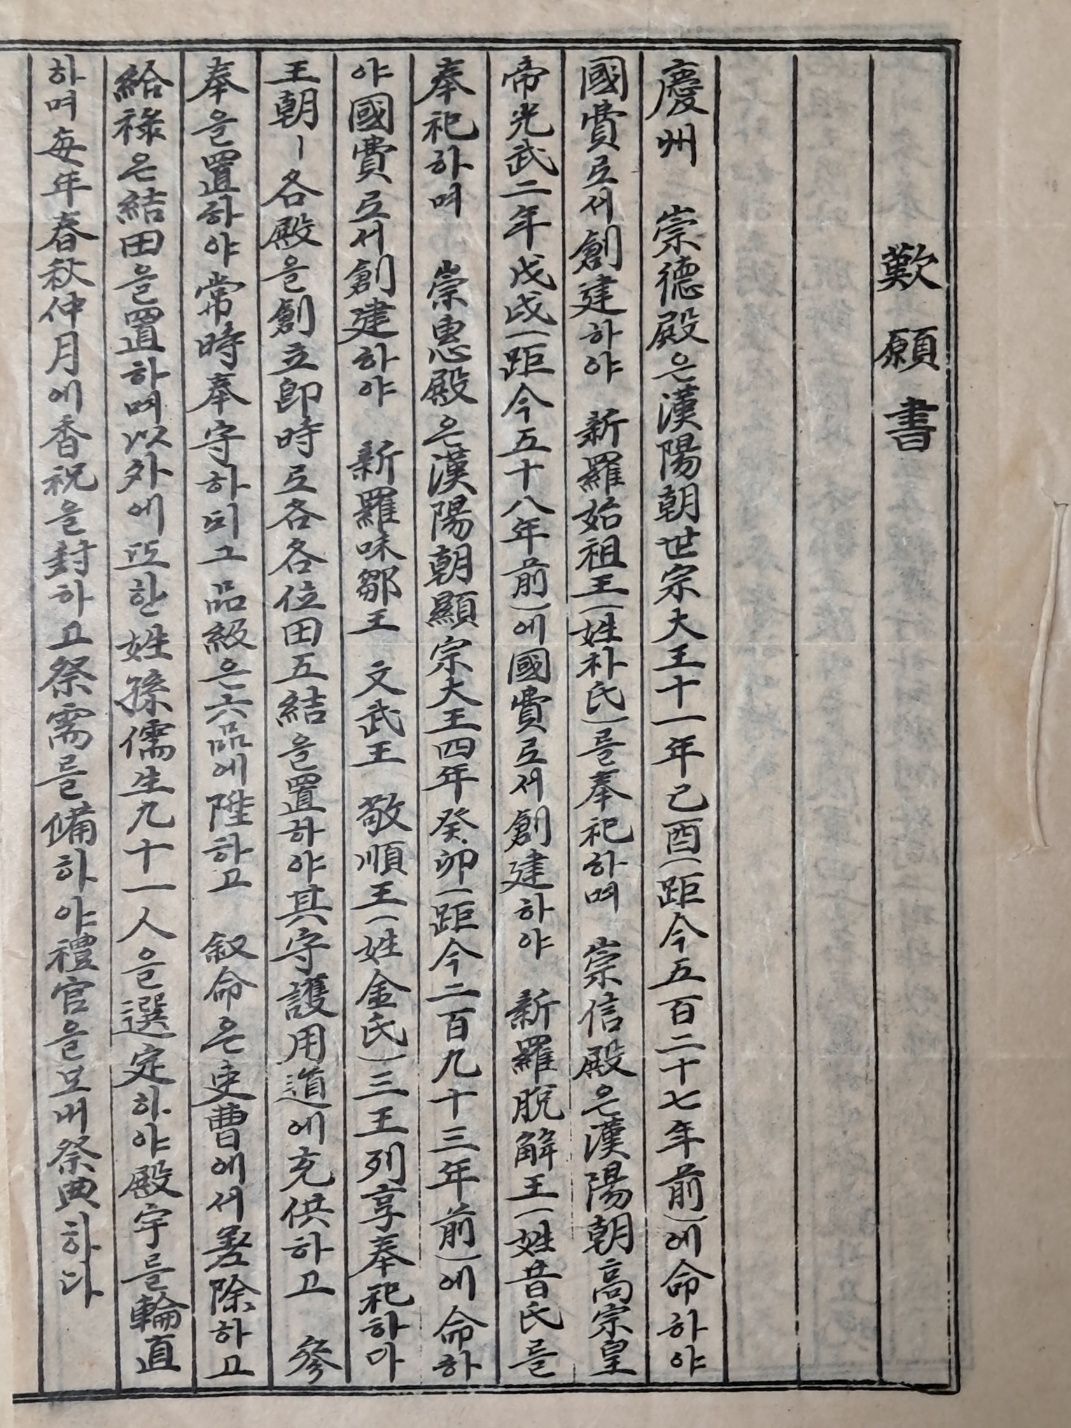 歎願書
慶州 崇德殿은漢陽朝世宗大王十一年己酉(距今五百二十七年前)에命하야
國費로서創建하야 新羅始祖王(姓朴氏)를奉祀하며 崇信殿은漢陽朝高宗皇
帝光武二年戊戌(距今五十八年前)에國費로서創建하야 新羅脫解王(姓昔氏를
奉祀하며 崇惠殿은漢陽朝顯宗大王四年癸卯(距今二百九十三年前)에命하
야國費로서創建하야 新羅味鄒王 文武王 敬順王(姓金氏)三王列享奉祀하마
王朝ㅣ各殿을創立卽時로各各位田五結을置하야其守護用道에充供하고 參
奉을置하야常時奉守하되그品級은六品에陞하고 叙命은吏曹에서差除하고
給祿은結田을置하며以外에또한姓孫儒生九十一人을選定하야殿宇를輪直
하며每年春秋仲月에香祝을封하고祭需를備하야禮官을보내祭典하다